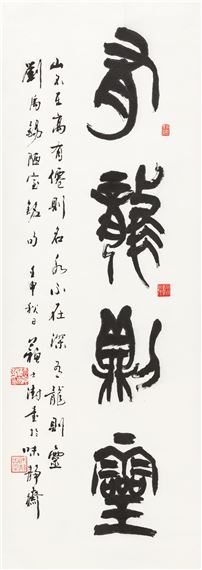 有龍則靈
山不在高有僊則名水不在深有龍則靈
劉禹錫陋室銘句 壬申秋日 蘇士澍書於味靜齋